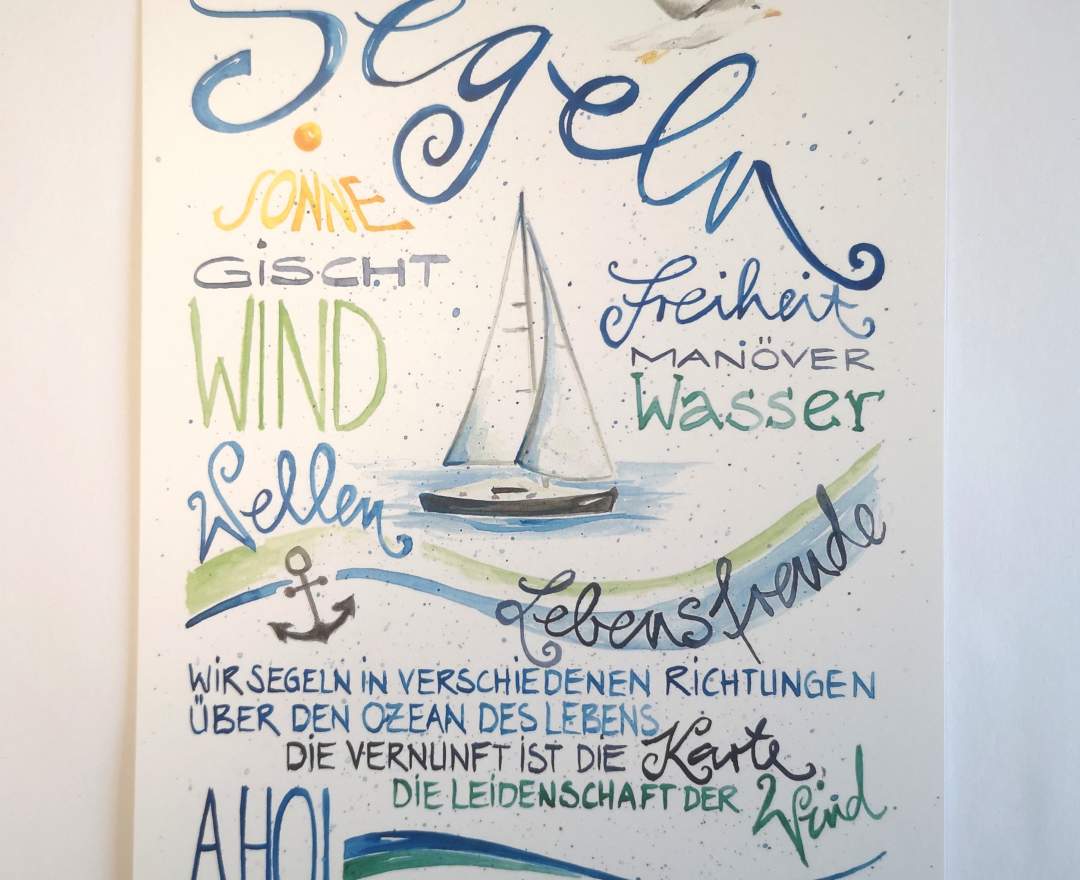 Segeln
SONNE
GISCHT
WIND
Wellen
Freiheit
MANÖVER
Wasser
Lebensfreude
WIR SEGELN IN VERSCHIEDENEN RICHTUNGEN
ÜBER DEN OZEAN DES LEBENS
DIE VERNUNFT IST DIE Karte,
DIE LEIDENSCHAFT DER Wind
AHOI